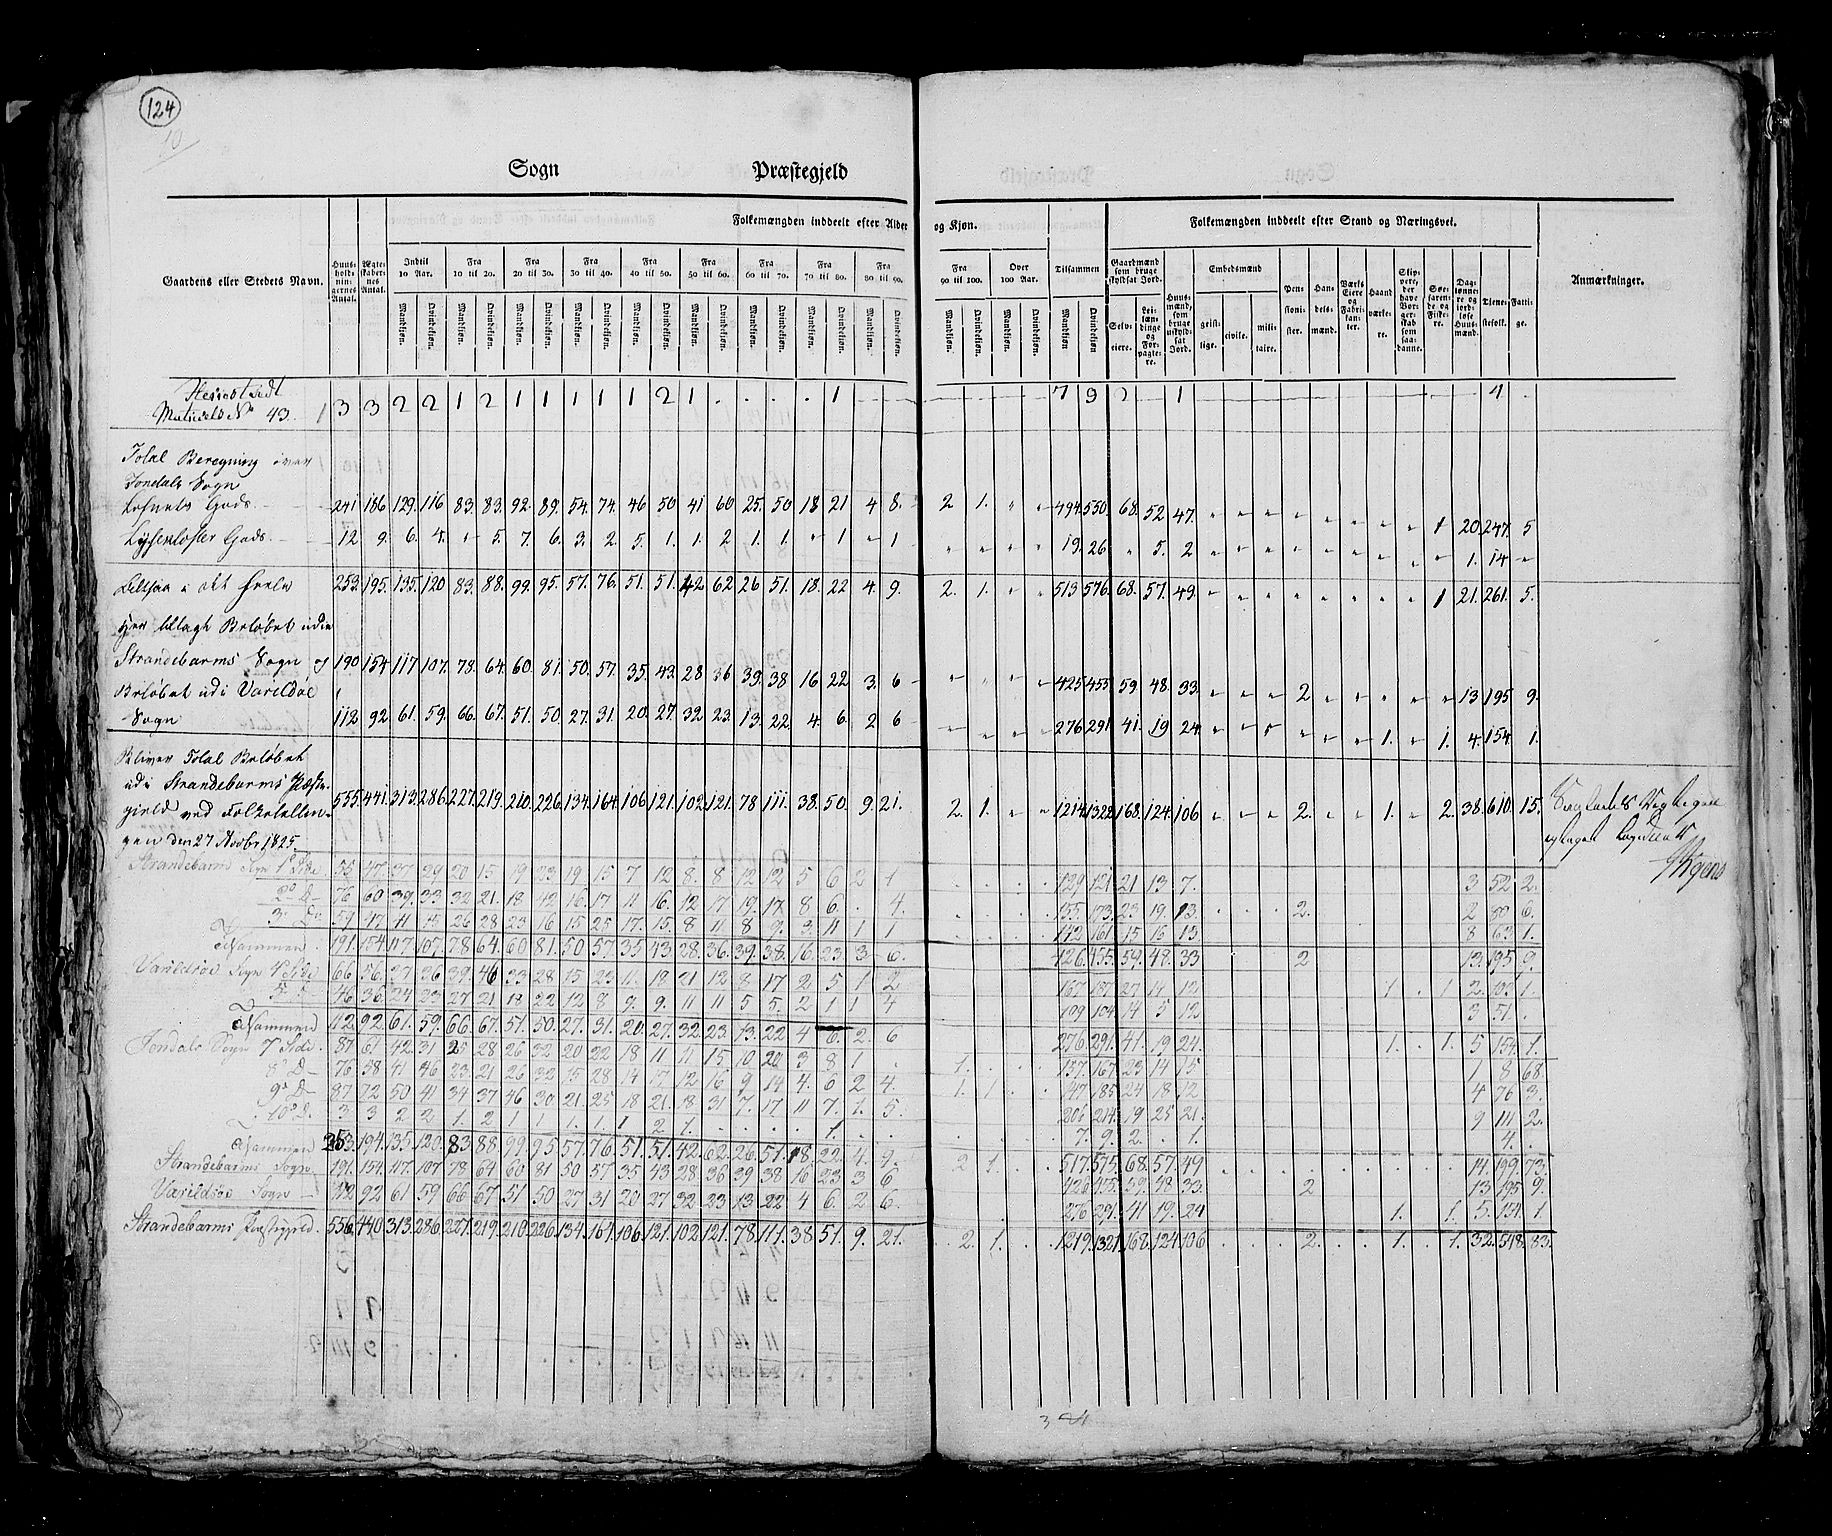 124
10
Sogn Præstegjeld
Gaardens eller Stedets Navn.
Huus-holdnin-gernes Antal.
Ægte-skaber-nes Antal.
Folkemængden inddeelt efter Alder og Kjøn.
Indtil 10 Aar. Fra 10 til 20. Fra 20 til 30. Fra 30 til 40. Fra 40 til 50. Fra 50 til 60. Fra 60 til 70. Fra 70 til 80. Fra 80 til 90. Fra 90 til 100. Over 100 Aar. Tilsammen
Mandkjøn. Qvindekjøn.
Folkemængden inddeelt efter Stand og Næringsvei.
Gaardmænd som bruge skyldsat Jord.
Selveiere. Leilændinge og Forpagtere.
Huusmænd, som bruge uskyldsat Jord.
Embedsmænd
geistlige. civile. militaire.
Pensionister.
Handelsmænd.
Værks Eiere og Fabrikanter.
Haandværkere.
Skippere, der have Borgerskab som saadanne.
Søefarende og Fiskere.
Daglønnere og jordløse Huusmænd.
Tjenestefolk.
Fattige.
Anmærkninger.
Matricul No 43. 3 3 2 2 1 2 1 1 1 1 1 2 1 . . . . 1 7 9 2 1 4
Total Beregning over
Jondals Sogn
Gods 241 186 129. 116 83. 83. 92. 89. 54. 74. 46 50 41 60 25. 50 18 21 4 8. 2 1. 494. 550. 68. 52 47. 1 20. 247. 5
Lysekloster Gods 12 9. 6. 4. " 5. 7. 6. 3. 2. 5. 1. 1. 2 1. 1. " 1 " 1 19. 26 " 5. 2 1. 14
Altsaa i alt 253. 195. 135. 120 83. 88. 99. 95. 57. 76. 51. 51. 42 62. 26 51. 18. 22 4. 9. 2. 1. 513 576. 68. 57. 49. 1 21. 261. 5.
Her tillagt Beløbet udi
Strandebarms Sogn og 190 154 117 107. 78. 64. 60. 81. 50. 57. 35. 43. 28 36 39. 38 16 22 3. 6 425 455. 59. 48. 33. 2 13 195 9.
Beløbet udi Varildsøe
Sogn 112 92 61. 59. 66. 67. 51. 50. 27. 31. 20. 27. 32 23. 13. 22. 4. 6. 2 6 276 291 41. 19 24. 1. 1. 4. 154. 1.
Bliver Total Beløbet
udi Strandebarms Præste-
gield ved Folketellin- 555. 441. 313. 286. 227. 219. 210. 226. 134. 164. 106 121. 102. 121. 78 111. 38. 50. 9. 21. 2. 1. 1214. 1322. 168. 124. 106 2. 1. 2. 38. 610. 15.
gen den 27 Novbr 1825.
Strandebarms Sogn 1 Side 55 47 37 29 20 15 19 23 19 15 7 12 8. 8 12 12 5 6 2 1 129 121 21 13 7. 3 52 2.
2 D 76 60 39. 33 32 21. 18 42 16. 17 11 16. 12 17 19. 17 8 6. . 4. 155 173. 23 19. 13. 2. 2 80 6.
3. Do 59 47 41 45 26 28 23 16 15 25 17. 15. 8 11 8 9. 3. 11 1 1 142 161 15 16 13 8 63 1.
Tilsammen 191. 154 117. 107. 78 64 60 81. 50 57 35 43. 28. 36. 39. 38. 16. 23. 3 6. 426. 455. 59. 48. 33 2 13. 195 9.
Varildsøe Sogn 4 Side 66 56 37 36 39 46 33 28 15 23 11. 18 21 12 8 17 2 5 1 2 167 187 27 14 12 1 . 1 2. 103 1.
5 46 36 24 23 27 21 18 22 12 8 9. 9. 11 11 5 5. 2 1 1 4 109 104 14 5 12 3 51 .
Tilsammen 112 92 61. 59. 66 67. 51. 50. 27. 31. 20. 27. 32. 23. 13. 22 4 6. 2. 6 276. 291. 41. 19 24. 1. . 1. 5 154. 1.
Jondals Sogn 7 Side. 87 61 42 31 25 28 26 32 20 22 18 11 11 15. 10 20 3 8 1 . 1. 137 167 23 14 15 1 8 68.
8 D 76 58 41 46 23 21 26 32 15 28 14 17 12 16. 9 14 4. 6 2 4. 1. 1 147 185 24 18 12 4 76 3.
9 D 87 72 50 41 34 37 46 30 21 25 18 21. 18 31 7. 17 11 7. 1. 5. 206 214. 19 25 21. 9 111 2.
10 D. 3 3 2 2 1. 2 1 1 1. 1. 1 2 1. . . . . 1. 7. 9. 2. . 1. 4.
Tilsammen 253. 194. 135. 120. 83 88 99 95 57 76 51. 51. 42 62. 26. 51. 18. 22. 4. 9. 2 1. 517. 575. 68. 57. 49 14. 199. 73.
Strandebarms Sogn 191. 154. 117. 107 78 64 60 81 50 57 35 43 28. 36 39 38 16 23 3 6 426 455. 59. 48 33. 2 13 195 9.
Varildsøe Sogn 112 92 61 59 66 67 51 50 27 31 20 27 32. 23 13. 22 4 6. 2 6. 276 291. 41 19. 24 1. 1. 5. 154. 1
Strandebarms Præstegield. 556. 440. 313. 286. 227. 219. 210. 226. 134. 164. 106. 121. 102. 121. 78. 111. 38 51. 9. 21. 2. 1. 1219. 1321. 168. 124. 106 2. 1. 1. 32. 548. 83.